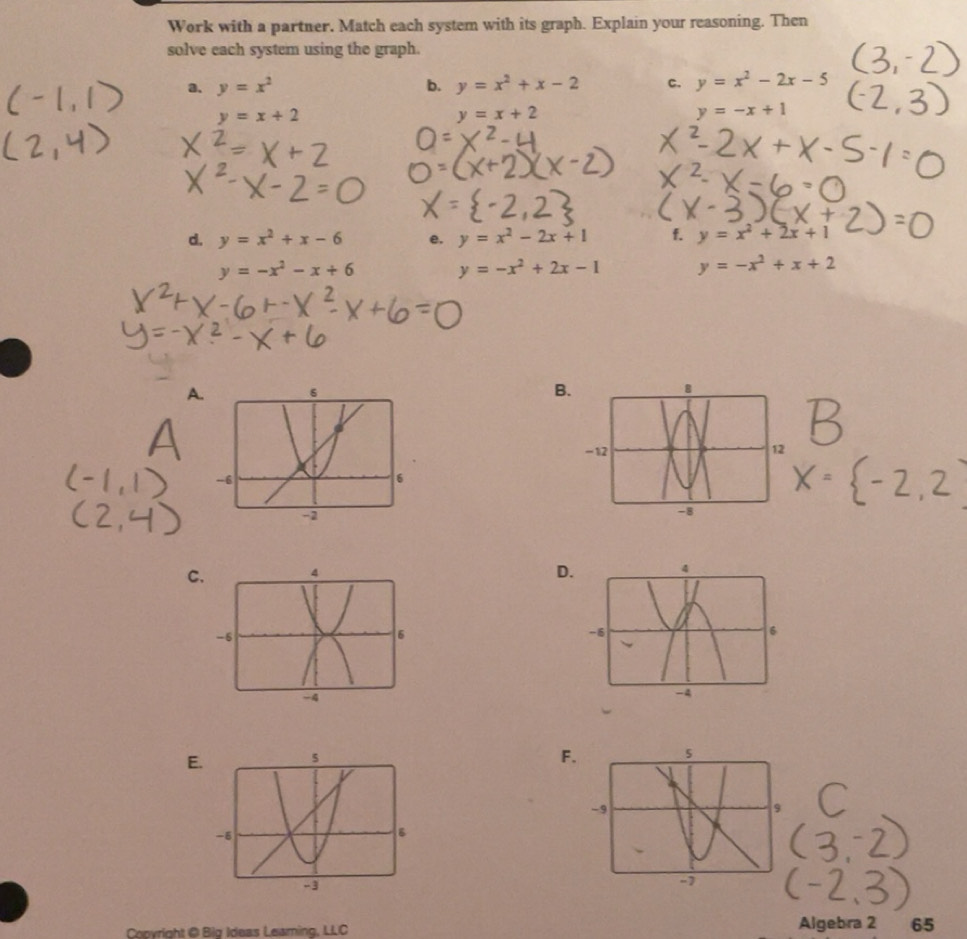 Work with a partner. Match each system with its graph. Explain your reasoning. Then
solve each system using the graph.
(3,-2)
(-2,3)
(-1,1)
(2,4)
a. y = x²
y = x + 2
x² = x + 2
x² - x - 2 = 0
b. y = x² + x − 2
y = x + 2
0 = x² - 4
0 = (x+2)(x-2)
x = {-2,2}
c. y = x² − 2x − 5
y = −x + 1
x² - 2x + x - 5 - 1 = 0
x² - x - 6 = 0
(x-3)(x+2) = 0
d. y = x² + x − 6
y = −x² − x + 6
x² + x - 6 + -x² - x + 6 = 0
y = -x² - x + 6
e. y = x² − 2x + 1
y = −x² + 2x − 1
f. y = x² + 2x + 1
y = −x² + x + 2
A.
6
-6
6
-2
A
(-1,1)
(2,4)
B.
8
-12
12
-8
B
x = {-2,2
C.
4
-6
6
-4
D.
4
-6
6
-4
E.
5
-6
6
-3
F.
5
-9
9
-7
C
(3,-2)
(-2,3)
Copyright © Big Ideas Learning, LLC
Algebra 2 65